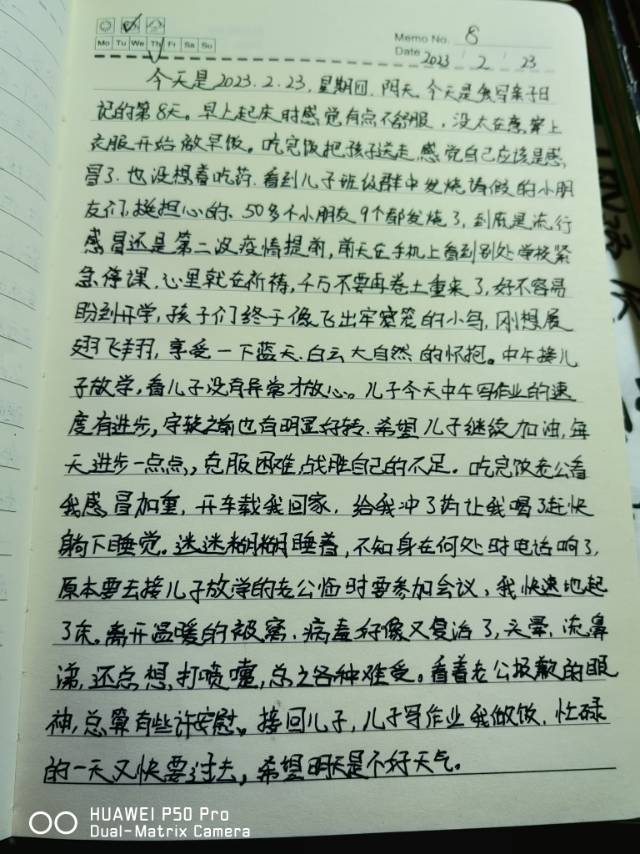 Memo No. 8
Mo Tu We Th Fr Sa Su
Date 2023 / 2 / 23
今天是2023.2.23,星期四.阴天.今天是我写亲子日
记的第8天。早上起床时感觉有点不舒服,没太在意,穿上
衣服开始做早饭。吃完饭把孩子送走,感觉自己应该是感
冒了.也没想着吃药.看到儿子班级群中发烧请假的小朋
友们,挺担心的.50多个小朋友9个都发烧了,到底是流行
感冒还是第二波疫情提前,前天在手机上看到别处学校紧
急停课,心里就在祈祷,千万不要再卷土重来了,好不容易
盼到开学,孩子们终于像飞出牢笼的小鸟,刚想展
翅飞翔,享受一下蓝天.白云大自然的怀抱。中午接儿
子放学,看儿子没有异常才放心。儿子今天中午写作业的速
度有进步,字较之前也有明显好转.希望儿子继续加油,每
天进步一点点,克服困难,战胜自己的不足。吃完饭老公看
我感冒加重,开车载我回家,给我冲了药让我喝了赶快
躺下睡觉。迷迷糊糊睡着,不知身在何处时电话响了,
原本要去接儿子放学的老公临时要参加会议,我快速地起
了床。离开温暖的被窝,病毒好像又复活了,头晕,流鼻
涕,还总想打喷嚏,总之各种难受。看着老公抱歉的眼
神,总算有些许安慰。接回儿子,儿子写作业我做饭,忙碌
的一天又快要过去,希望明天是个好天气。
HUAWEI P50 Pro
Dual-Matrix Camera